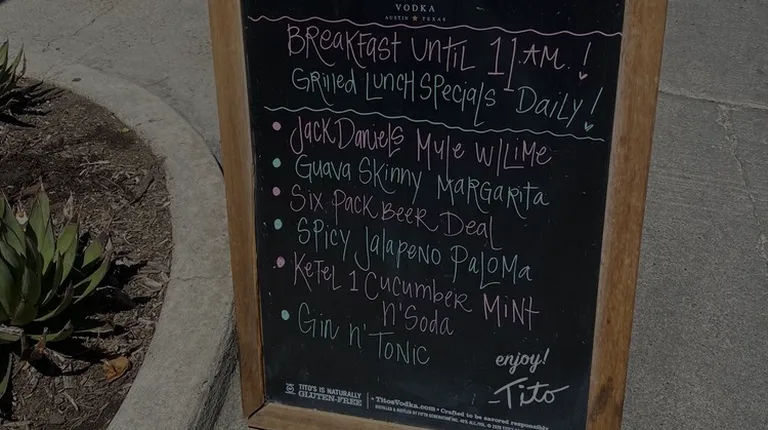 VODKA
AUSTIN ★ TEXAS
BREAKFAST UNTIL 11 AM.!
GRILLED LUNCH SPECIALS DAILY!
• JACK DANIELS MULE W/LIME
• GUAVA SKINNY MARGARITA
• SIX PACK BEER DEAL
• SPICY JALAPENO PALOMA
• KETEL 1 CUCUMBER MINT
N' SODA
• GIN N' TONIC
enjoy!
-Tito
TITO'S IS NATURALLY
GLUTEN-FREE
• TitosVodka.com • Crafted to be savored responsibly.